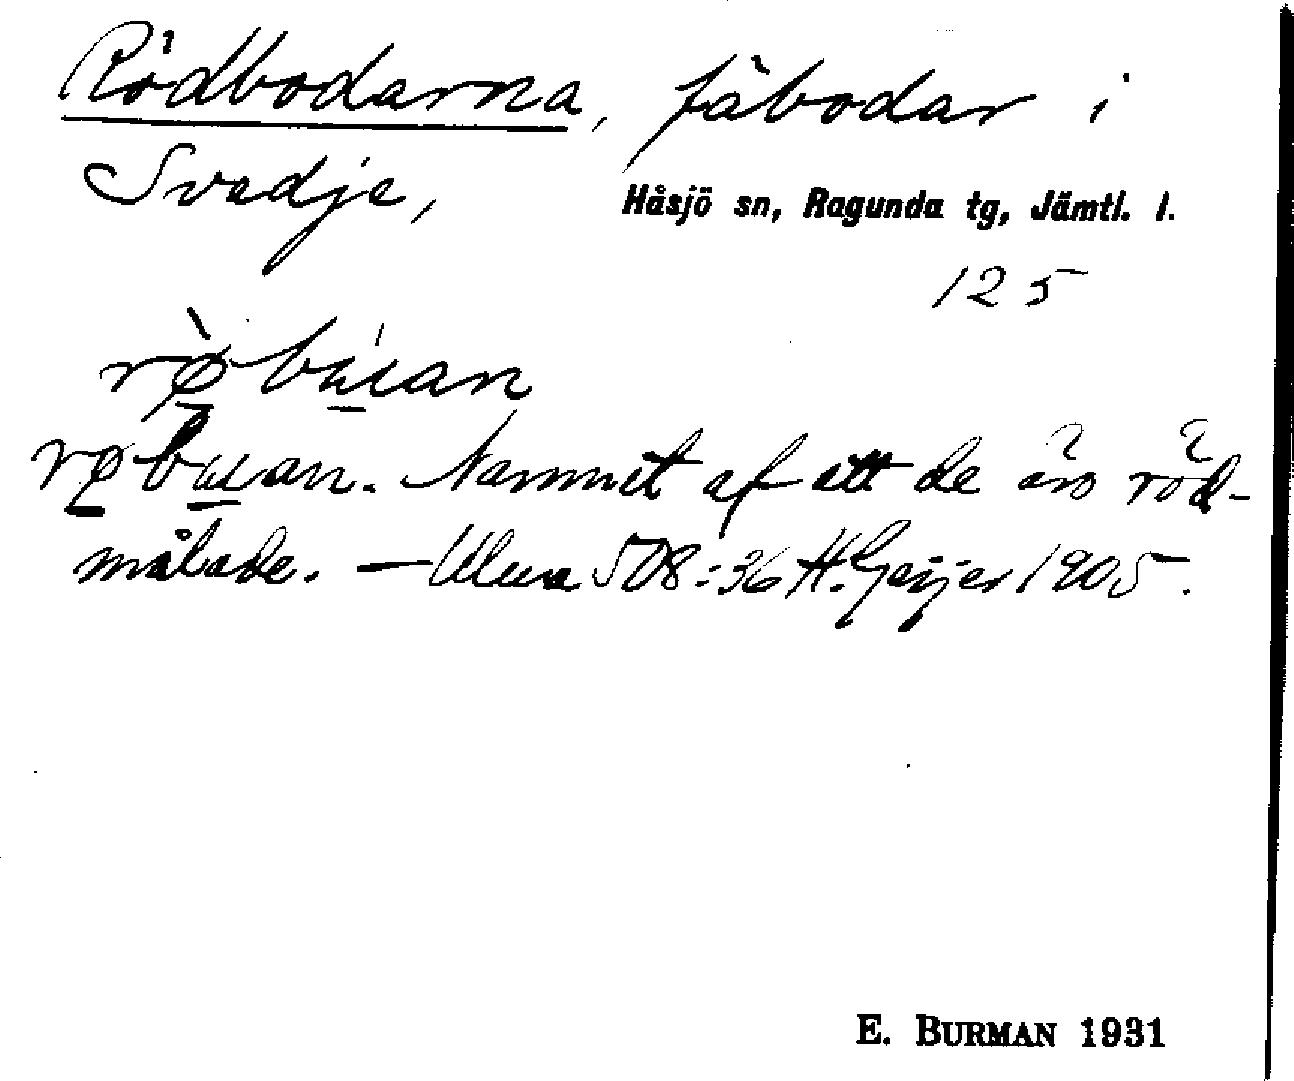 Rödbodarna, fäbodar i
Svedje, Håsjö sn, Ragunda tg, Jämtl. l.
125
Namnet af att de äro röd-
målade. — Ulma 508:36 H. Geijer 1905.
E. BURMAN 1931